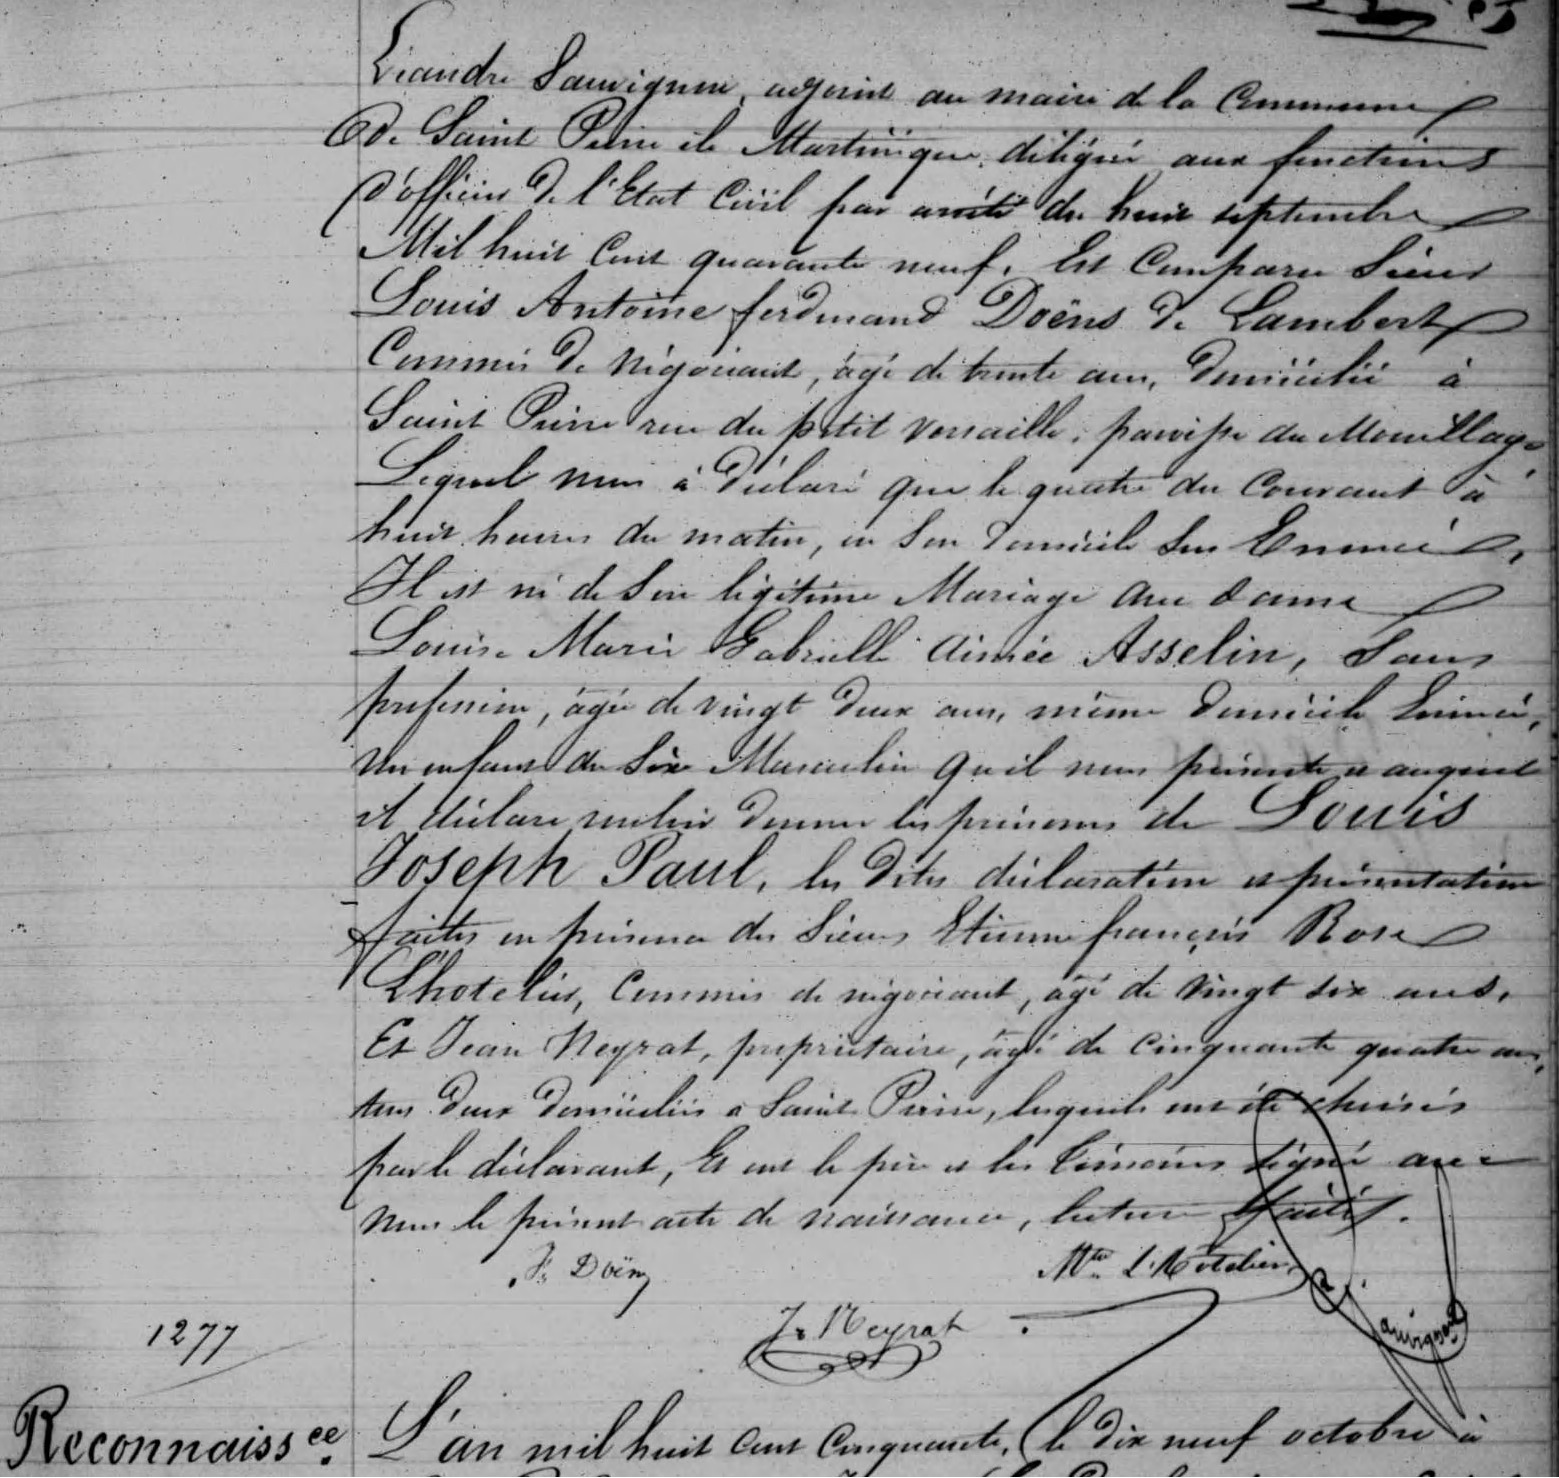 Léandre Sauvignon, adjoint au maire de la Commune
de Saint Pierre ile Martinique, délégué aux fonctions
d'officier de l'Etat Civil par arrêté du huit septembre
Mil huit Cent quarante neuf. Est Comparu Sieur
Louis Antoine ferdinand Doëns de Lambert
Commis de négociant, âgé de trente ans, domicilié à
Saint Pierre rue du petit versaille, paroisse du Mouillage
Lequel nous à déclaré que le quatre du Courant à
huit heures du matin, en Son domicile Sus Enoncé,
Il est né de Son légitime Mariage avec dame
Louise Marie Gabrielle Aimée Asselin, Sans
profession, âgée de vingt deux ans, même domicile
Un enfant du Sèxe Masculin qu'il nous présente et auquel
il déclare vouloir donner les prénoms de Louis
Joseph Paul, les dites déclaration et présentation
faites en présence des Sieurs Etienne françois Rose
L'hotelier, Commis de négociant, âgé de vingt six ans.
Et Jean Neyrat, propriétaire, âgé de cinquante quatre ans,
tous deux domiciliés à Saint Pierre, lesquels ont été choisis
par le déclarant, Et ont le père et les témoins signé avec
Nous le présent acte de naissance, lecture faite.
Fd. Doëns
L'Hotelier
Jn Neyrat
Sauvignon
1277
Reconnaissce.
L'an mil huit cent Cinquante, le dix neuf octobre à